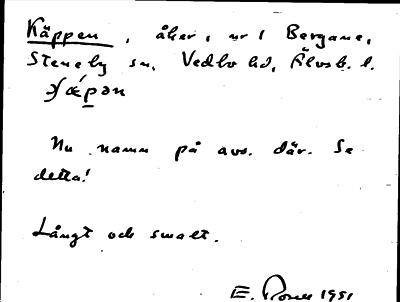 Käppen, åker, nr 1 Bergane,
Steneby sn, Vedbo hd, Älvsb. l.
Nu namn på avs. där. Se
detta!
Långt och smalt.
E. 1951